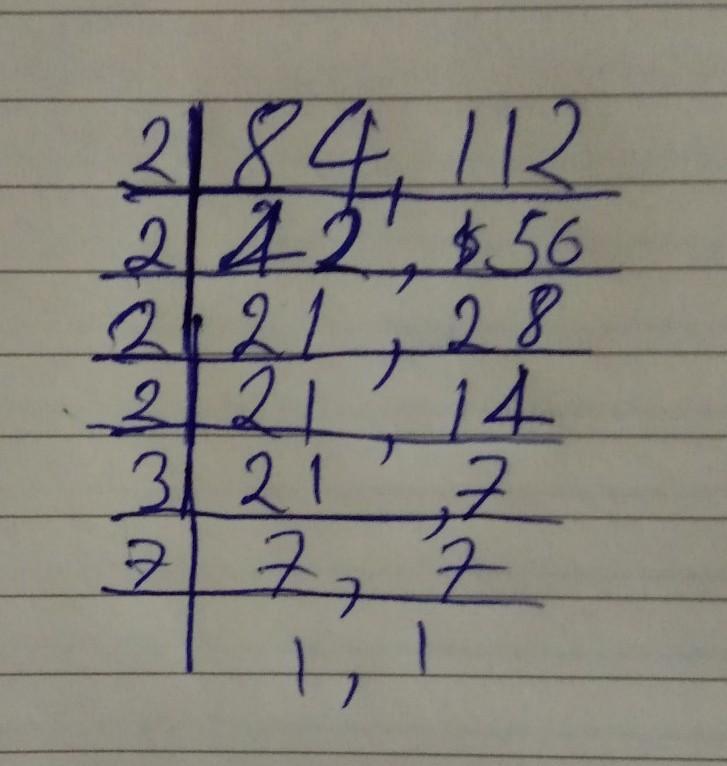 2 | 84, 112
2 | 42, 56
2 | 21, 28
2 | 21, 14
3 | 21, 7
7 | 7, 7
1, 1